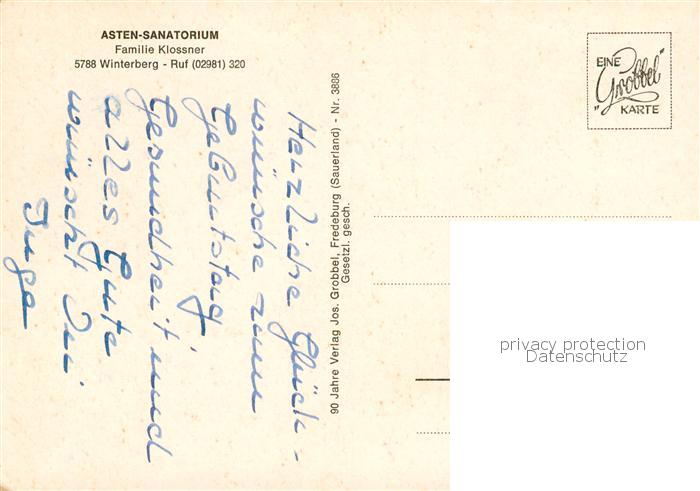 ASTEN-SANATORIUM
Familie Klossner
5788 Winterberg - Ruf (02981) 320
Herzliche Glück-
wünsche zum
Geburtstag,
Gesundheit und
alles Gute
wünscht Dir
Inge
90 Jahre Verlag Jos. Grobbel, Fredeburg (Sauerland) - Nr. 3886
Gesetzl. gesch.
EINE
"Grobbel"
KARTE
privacy protection
Datenschutz